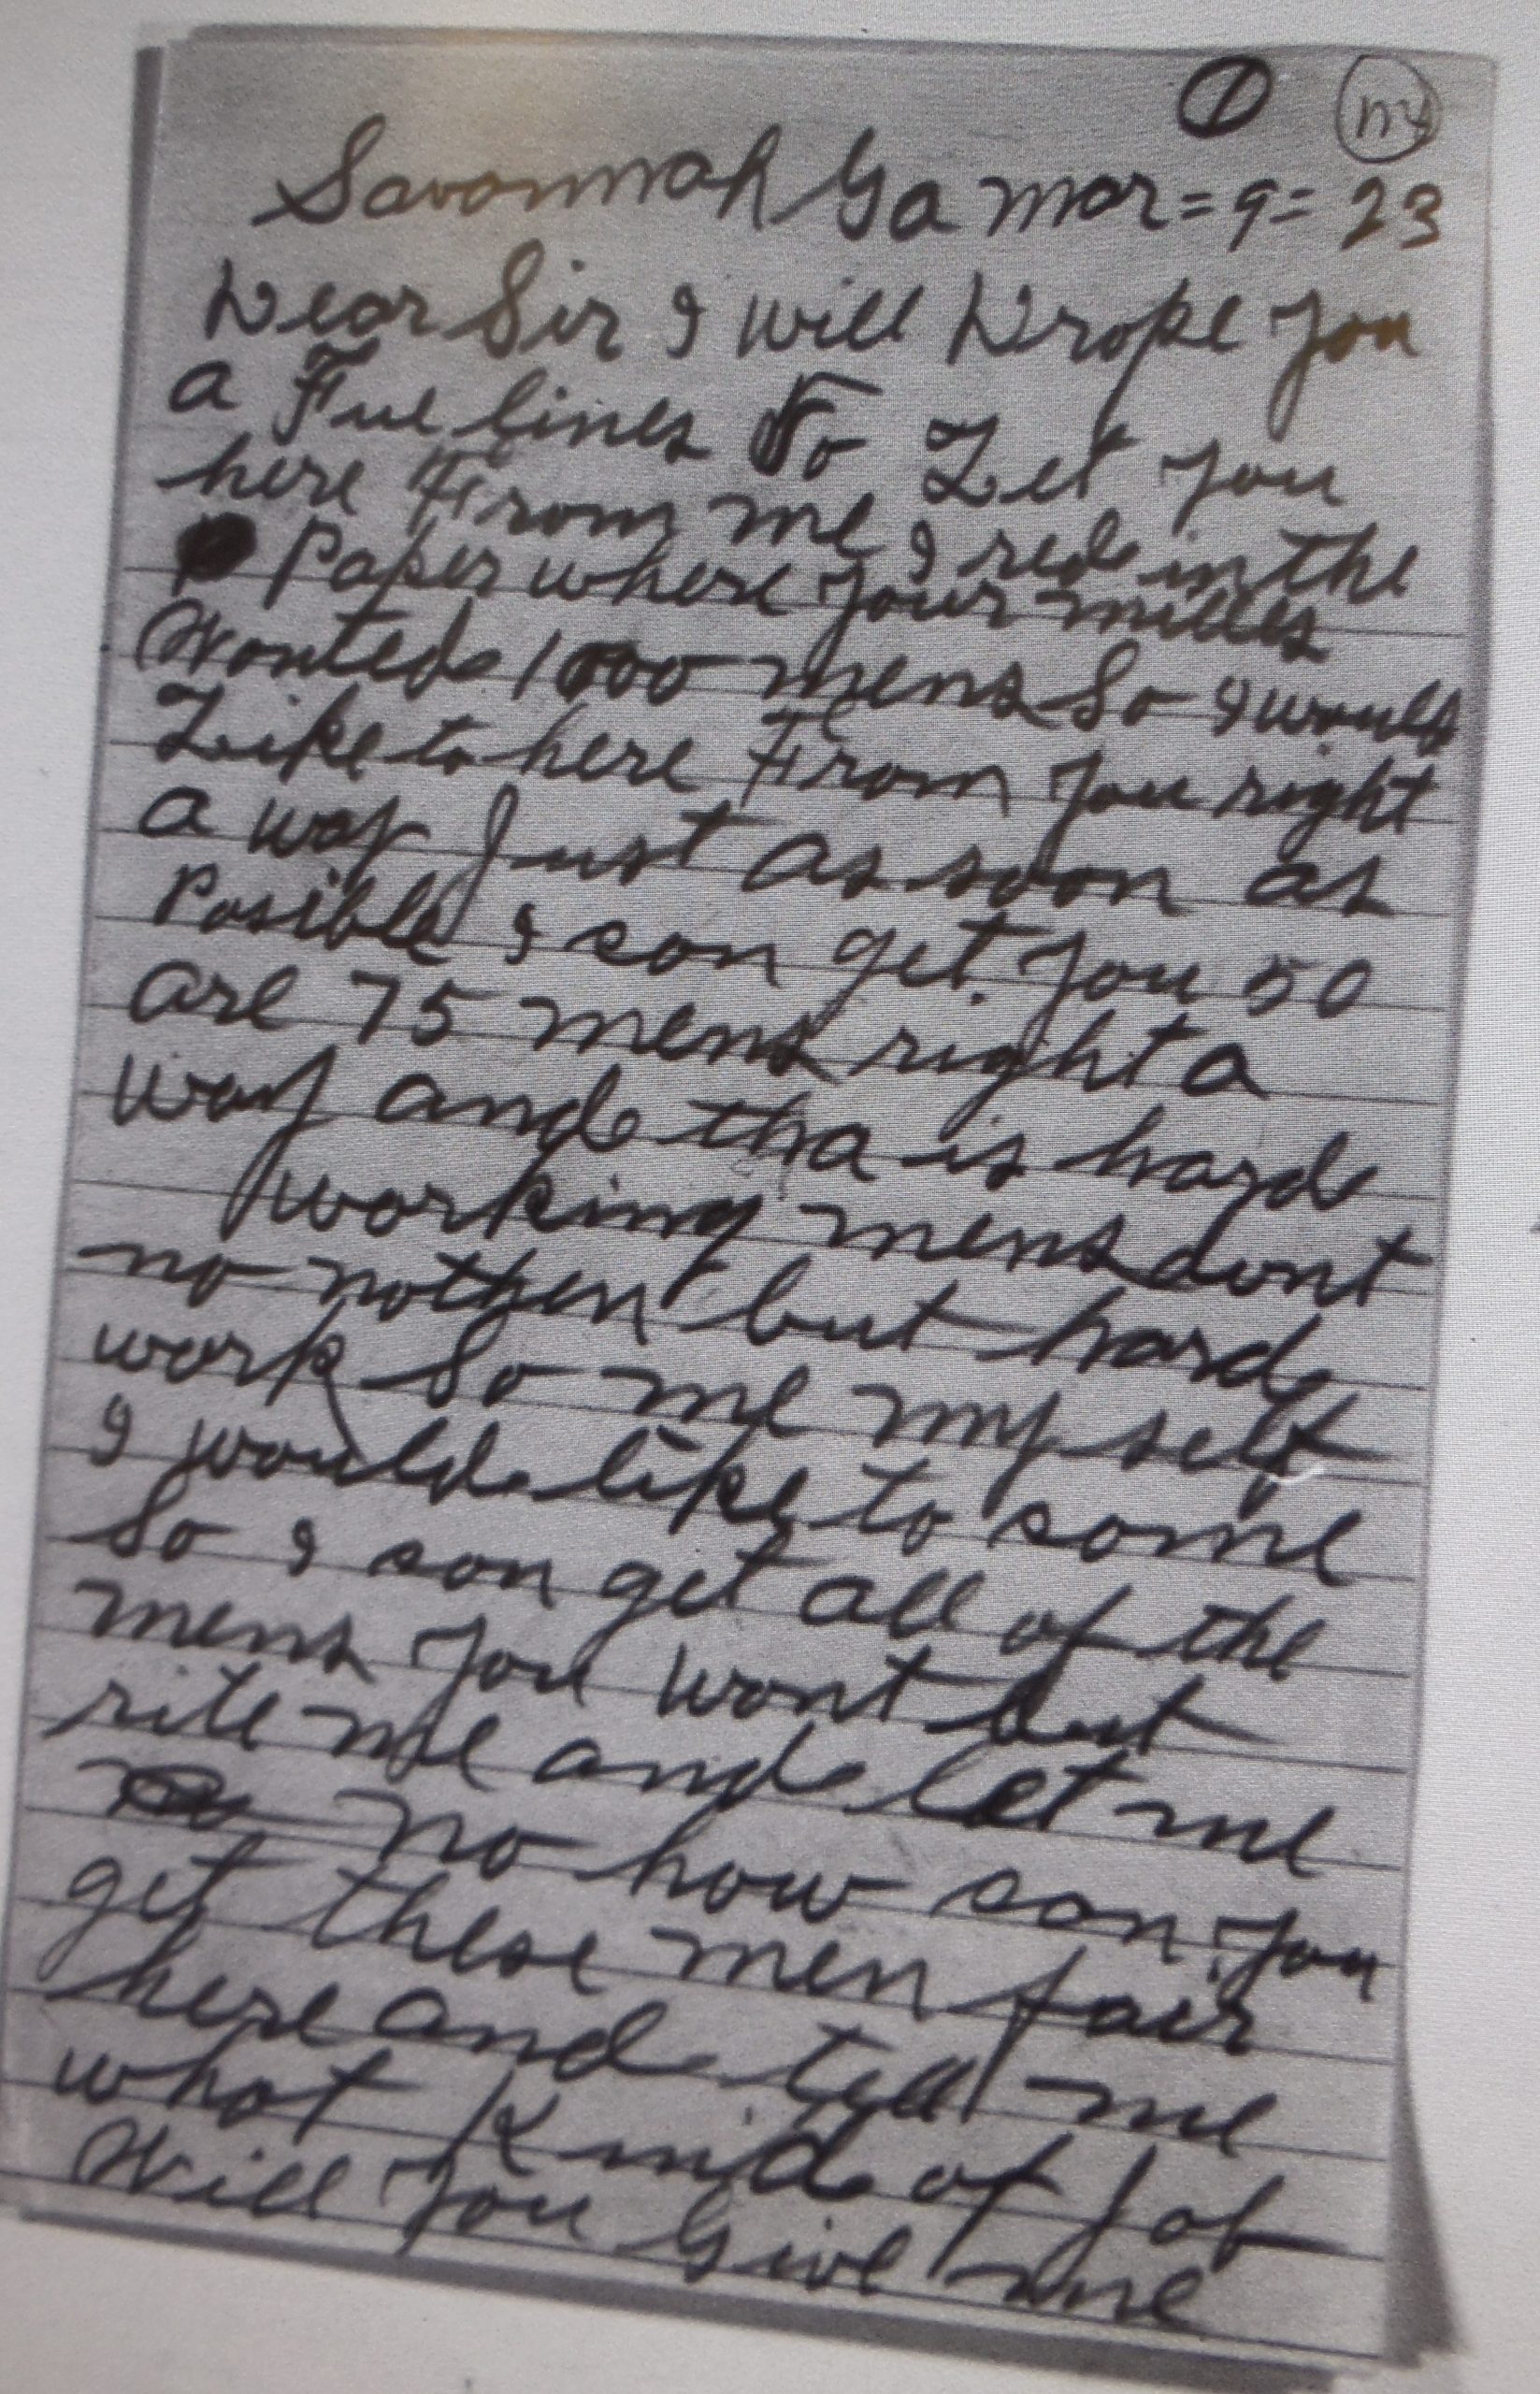 1 my
Savannah Ga Mar = 9 = 23
Dear Sir I will Drope you
a Fue lines to Let you
here From me I red in the
Paper where your milles
Wanted 1000 mens So I would
Like to here From you right
a way Just as soon as
Posible I can get you 50
are 75 mens right a
way and tha is hard
working mens dont
no nothen but hard
work So me my self
I would like to come
So I can get all of the
mens you want but
rite me and let me
no how can you
get these men fair
here and tell me
what Kind of Job
Will you Give me